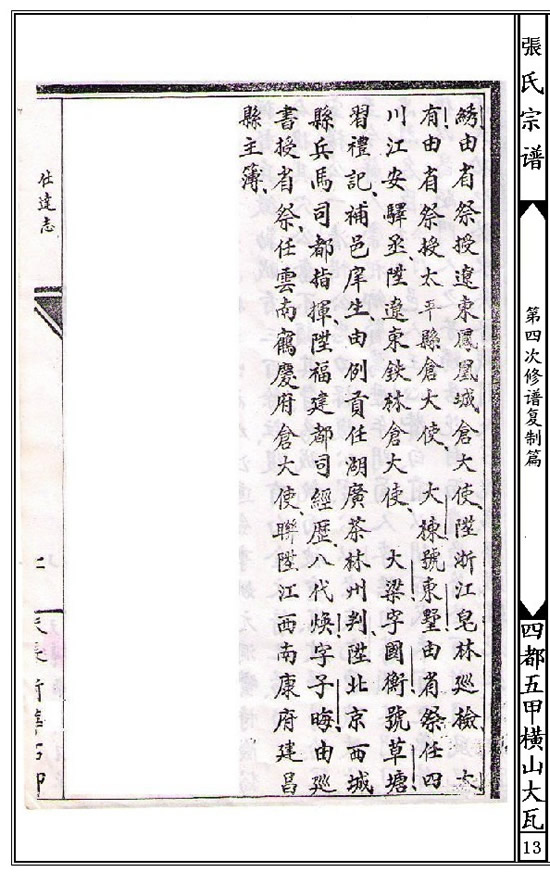 張氏宗谱
第四次修谱复制篇
四都五甲橫山大瓦
13
綉由省祭授遼東鳳凰城倉大使陞浙江皂林廵檢、大
有由省祭授太平縣倉大使、大棟號東墅由省祭任四
川江安驛丞陞遼東鉄林倉大使、大梁字國衡號草塘
習禮記補邑庠生由例貢任湖廣茶林州判陞北京西城
縣兵馬司都指揮陞福建都司經歷、八代焕字子晦由廵
書授省祭任雲南鶴慶府倉大使聯陞江西南康府建昌
縣主簿、
仕達志